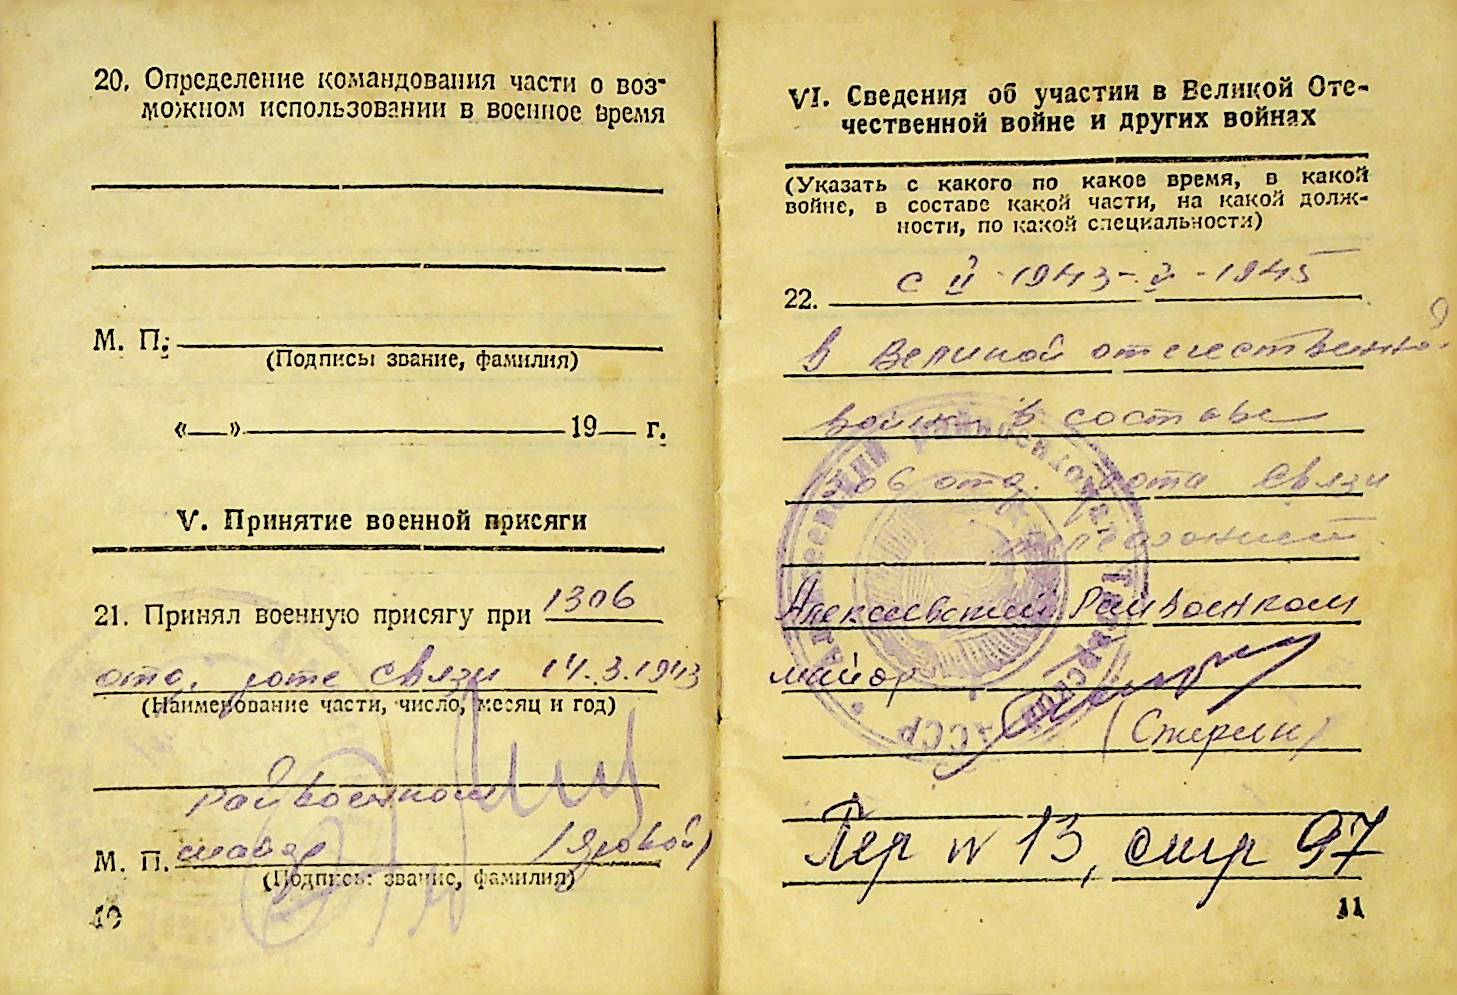 20. Определение командования части о воз-
можном использовании в военное время
М. П.
(Подпись: звание, фамилия)
«__»__________19__ г.
V. Принятие военной присяги
21. Принял военную присягу при 1306
отд. роте связи 14.3.1943
(Наименование части, число, месяц и год)
Райвоенком
М. П. майор (Яровой)
(Подпись: звание, фамилия)
10
VI. Сведения об участии в Великой Оте-
чественной войне и других войнах
(Указать с какого по какое время, в какой
войне, в составе какой части, на какой долж-
ности, по какой специальности)
22. с II-1943-V-1945
в Великой отечественной
войне в составе
306 отд. рота связи
Алексеевский Райвоенком
майор
Пер № 13, стр 97
11